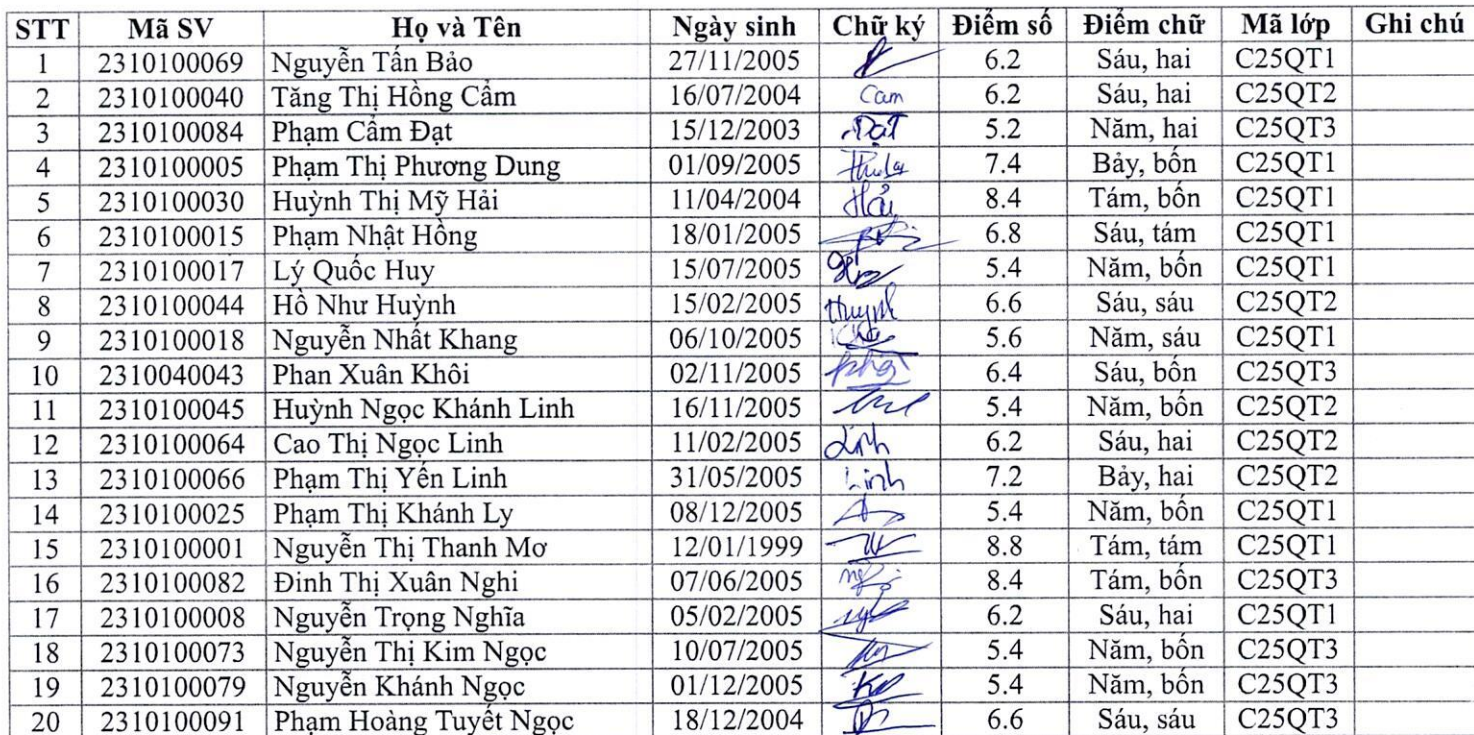 STT Mã SV Họ và Tên Ngày sinh Chữ ký Điểm số Điểm chữ Mã lớp Ghi chú
1 2310100069 Nguyễn Tấn Bảo 27/11/2005 6.2 Sáu, hai C25QT1
2 2310100040 Tăng Thị Hồng Cẩm 16/07/2004 Cam 6.2 Sáu, hai C25QT2
3 2310100084 Phạm Cẩm Đạt 15/12/2003 Đạt 5.2 Năm, hai C25QT3
4 2310100005 Phạm Thị Phương Dung 01/09/2005 7.4 Bảy, bốn C25QT1
5 2310100030 Huỳnh Thị Mỹ Hải 11/04/2004 Hải 8.4 Tám, bốn C25QT1
6 2310100015 Phạm Nhật Hồng 18/01/2005 6.8 Sáu, tám C25QT1
7 2310100017 Lý Quốc Huy 15/07/2005 5.4 Năm, bốn C25QT1
8 2310100044 Hồ Như Huỳnh 15/02/2005 Huynh 6.6 Sáu, sáu C25QT2
9 2310100018 Nguyễn Nhất Khang 06/10/2005 5.6 Năm, sáu C25QT1
10 2310040043 Phan Xuân Khôi 02/11/2005 6.4 Sáu, bốn C25QT3
11 2310100045 Huỳnh Ngọc Khánh Linh 16/11/2005 5.4 Năm, bốn C25QT2
12 2310100064 Cao Thị Ngọc Linh 11/02/2005 Linh 6.2 Sáu, hai C25QT2
13 2310100066 Phạm Thị Yến Linh 31/05/2005 Linh 7.2 Bảy, hai C25QT2
14 2310100025 Phạm Thị Khánh Ly 08/12/2005 5.4 Năm, bốn C25QT1
15 2310100001 Nguyễn Thị Thanh Mơ 12/01/1999 8.8 Tám, tám C25QT1
16 2310100082 Đinh Thị Xuân Nghi 07/06/2005 8.4 Tám, bốn C25QT3
17 2310100008 Nguyễn Trọng Nghĩa 05/02/2005 6.2 Sáu, hai C25QT1
18 2310100073 Nguyễn Thị Kim Ngọc 10/07/2005 5.4 Năm, bốn C25QT3
19 2310100079 Nguyễn Khánh Ngọc 01/12/2005 5.4 Năm, bốn C25QT3
20 2310100091 Phạm Hoàng Tuyết Ngọc 18/12/2004 6.6 Sáu, sáu C25QT3